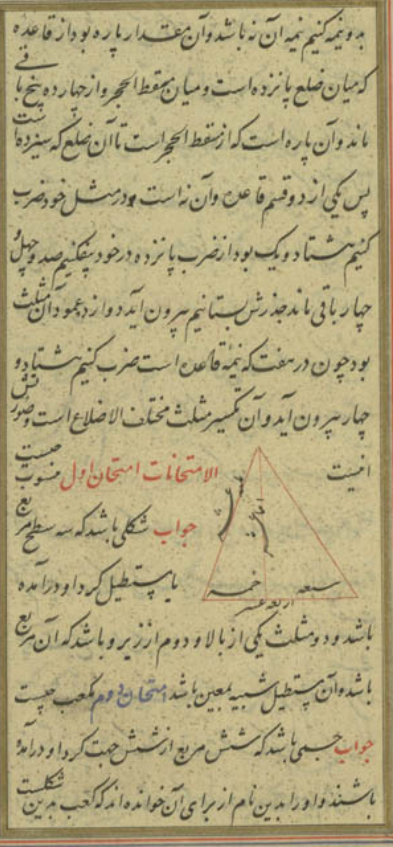 بدو نیمه کنیم نیمه آن نه باشد و آن مقدار پاره بود از قاعده
که میان ضلع پانزده است و میان مسقط الحجر و از چهارده پنج باقی
ماند و آن پاره است که از مسقط الحجر است تا آن ضلع که سیزده است
پس یکی از دو قسم قاعده و آن نه است در مثل خود ضرب
کنیم هشتاد و یک بود از ضرب پانزده در خود بیفکنیم صد و چهل و
چهار باقی ماند جذرش بستانیم بیرون آید دوازده عمود آن مثلث
بود چون در هفت که نیمه قاعده است ضرب کنیم هشتاد و
چهار بیرون آید و آن تکسیر مثلث مختلف الاضلاع است و صورتش
اینست
الامتحانات امتحان اول منسوب چیست
جواب شکلی باشد که سه سطح مربع
یا مستطیل گرد او درآمده
تسعه خمسه
اربعة عشر
باشد و دو مثلث یکی از بالا و دوم از زیر و باشد که آن مربع
باشد و آن مستطیل شبیه بمعین باشد امتحان دوم مکعب چیست
جواب جسمی باشد که شش مربع از شش جهت گرد او درآمده
باشند و او را بدین نام از برای آن خوانده‌اند که کعب بدین شکلست